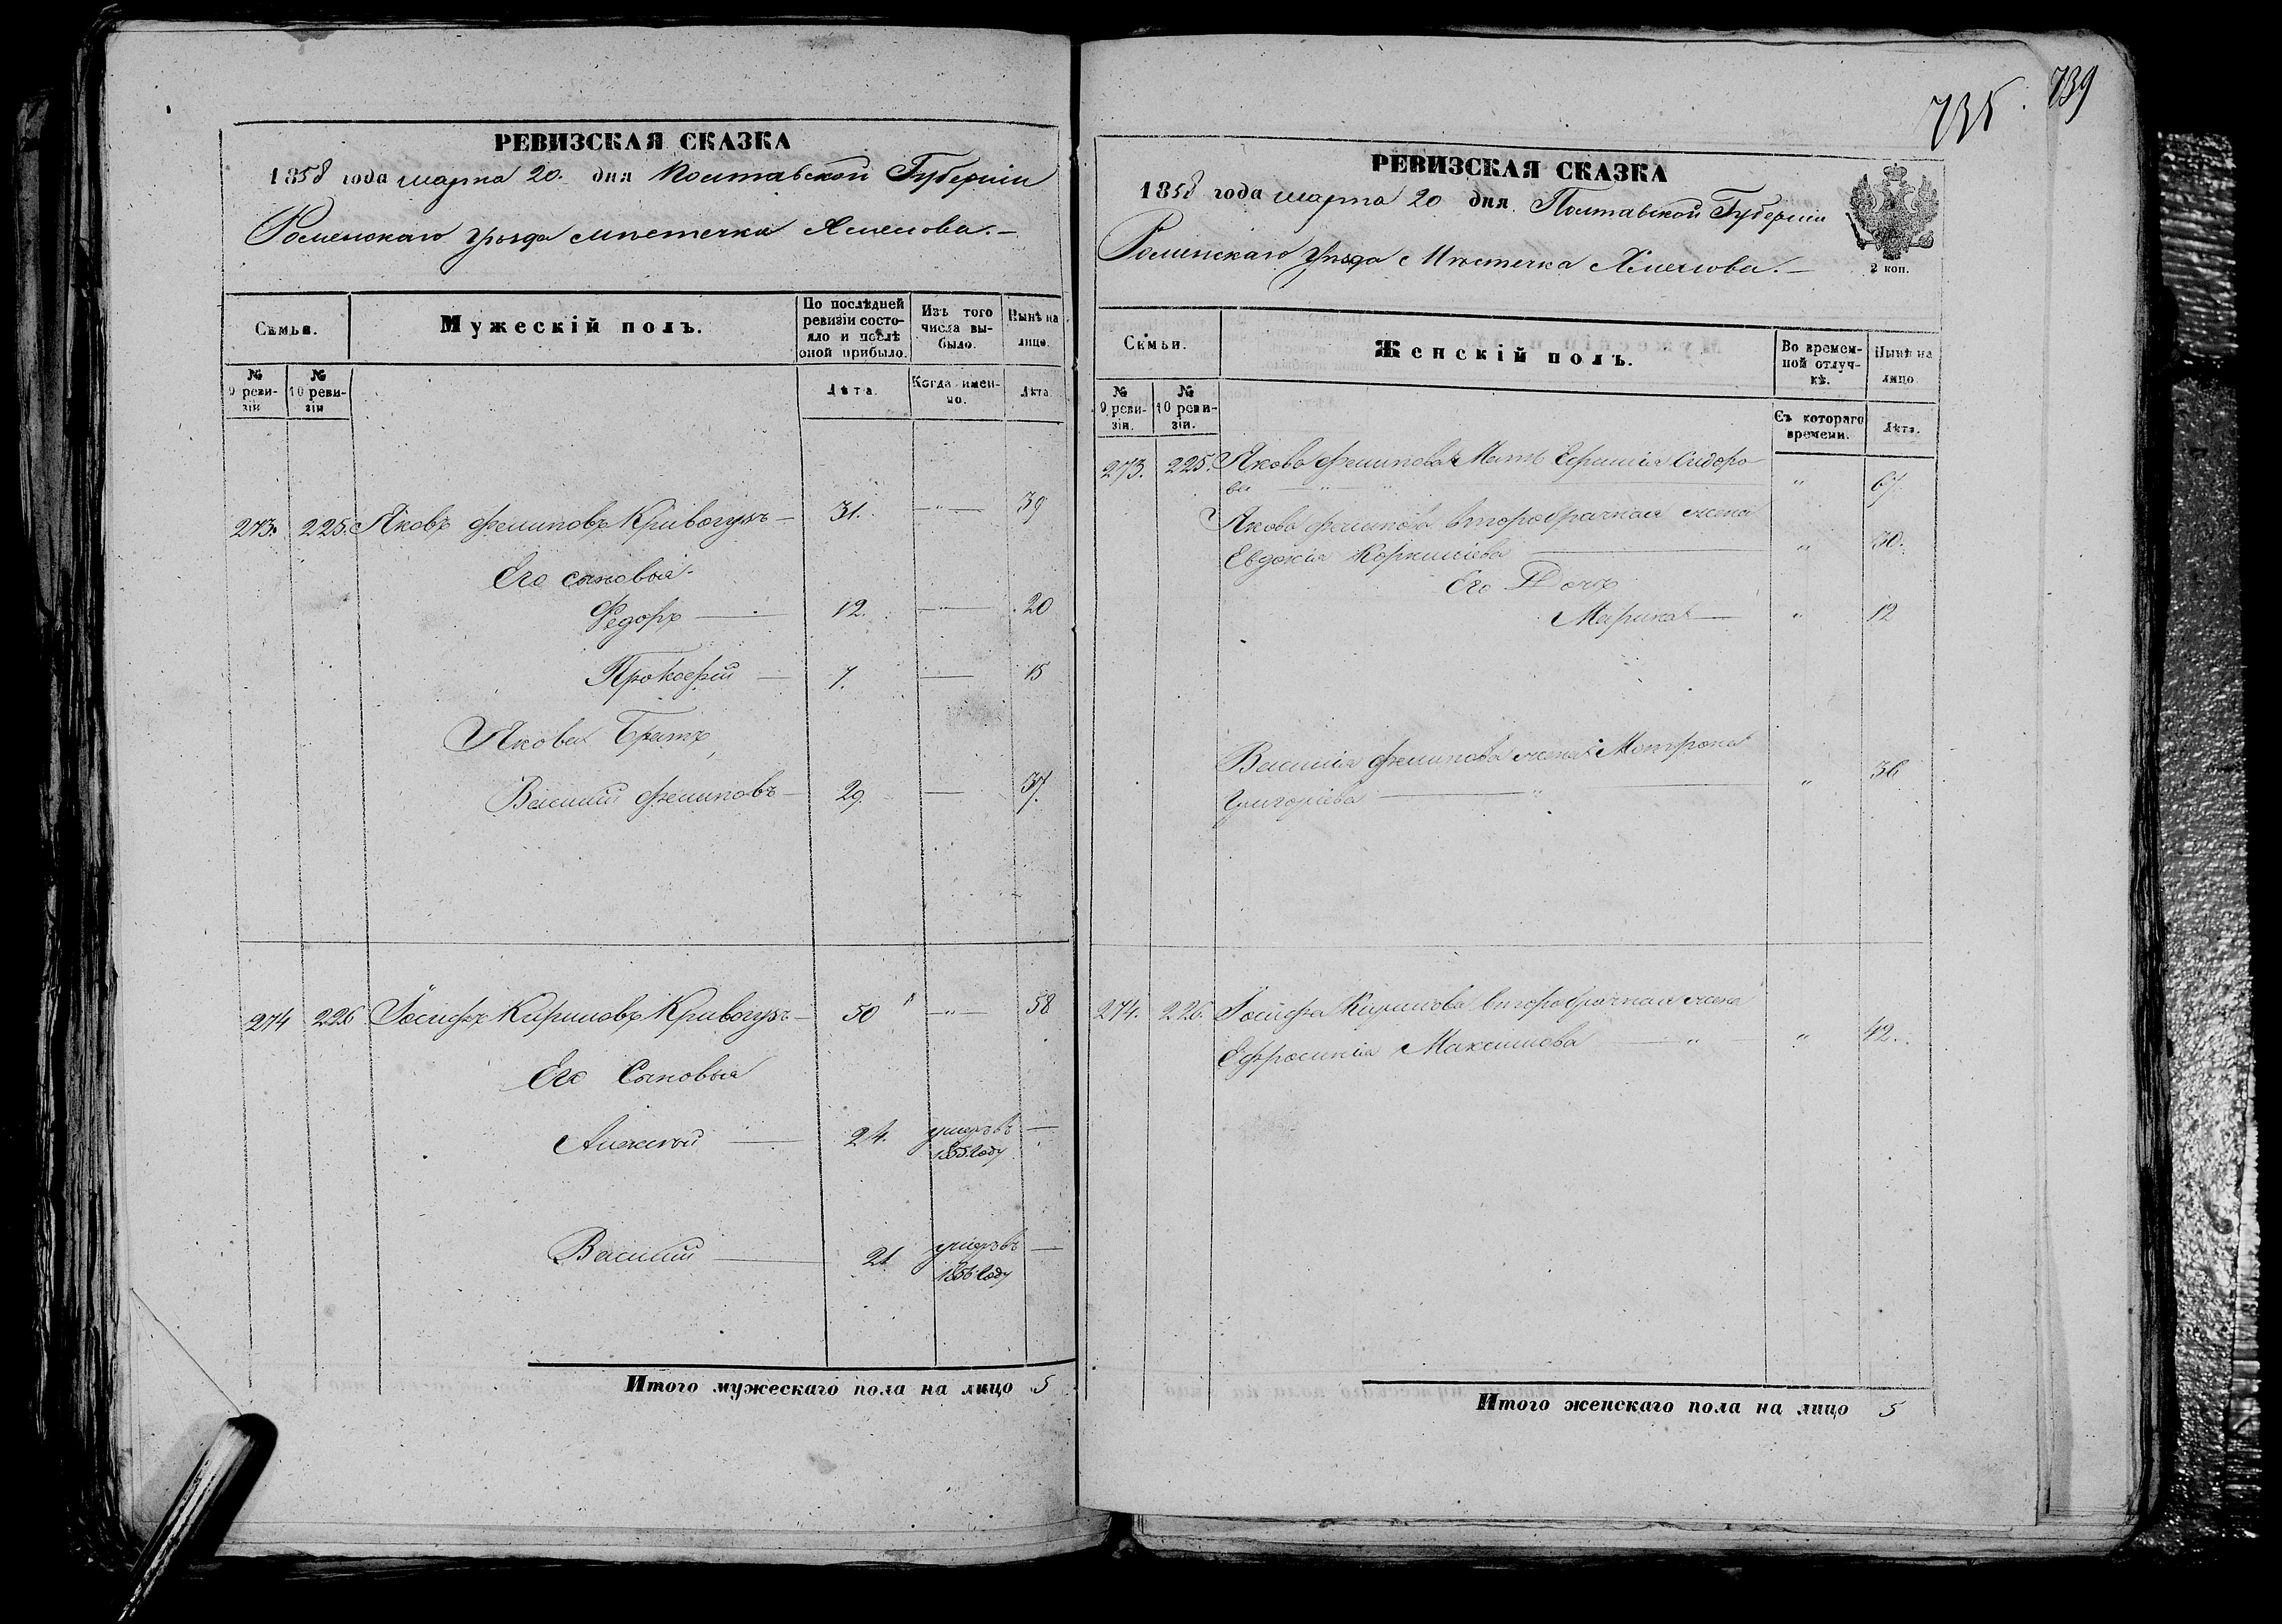 РЕВИЗСКАЯ СКАЗКА
1858 года марта 20. дня Полтавской Губерніи
Роменскаго уѣзда мѣстечка
Семьи.
Мужескій полъ.
По послѣдней ревизіи состояло и послѣ оной прибыло.
Изъ того числа выбыло.
Нынѣ на лицо.
№ 9 ревизіи
№ 10 ревизіи
Лѣта.
Когда именно.
Лѣта.
273. 225. Яковъ Филиповъ Кривогузъ — 31. — " — 39
Его сыновья
Федоръ — 12. — 20
Прокофій — 7. — 15
Якова Братъ
Василий Филиповъ — 29. — 37.
274 226 Іосифъ Кириловъ Кривогузъ — 50 — " — 58
Его Сыновья
Алексѣй — 24. умеръ въ —
1855 Году
Василий — 21 умеръ въ —
1856 Году
Итого мужескаго пола на лицо 5
735. 739
РЕВИЗСКАЯ СКАЗКА
1858 года марта 20 дня Полтавской Губерніи
Роменскаго уѣзда Мѣстечка
2 коп.
Семьи.
Женскій полъ.
Во временной отлучкѣ.
Нынѣ на лицо
№ 9 ревизіи.
№ 10 ревизіи.
Съ котораго времени.
Лѣта.
273. 225. Якова Филипова Мать Сидоро-
ва — " — " " 67.
Якова Филипова второбрачная жена
Евдокія Корниліева — " 30.
Его Дочь
Марина — " 12
Василія Филипова жена Матрона
Григоріева — " — " 36
274. 226. Іосифа Кирилова второбрачная жена
Ефросинія Максимова — " " 42.
Итого женскаго пола на лицо 5